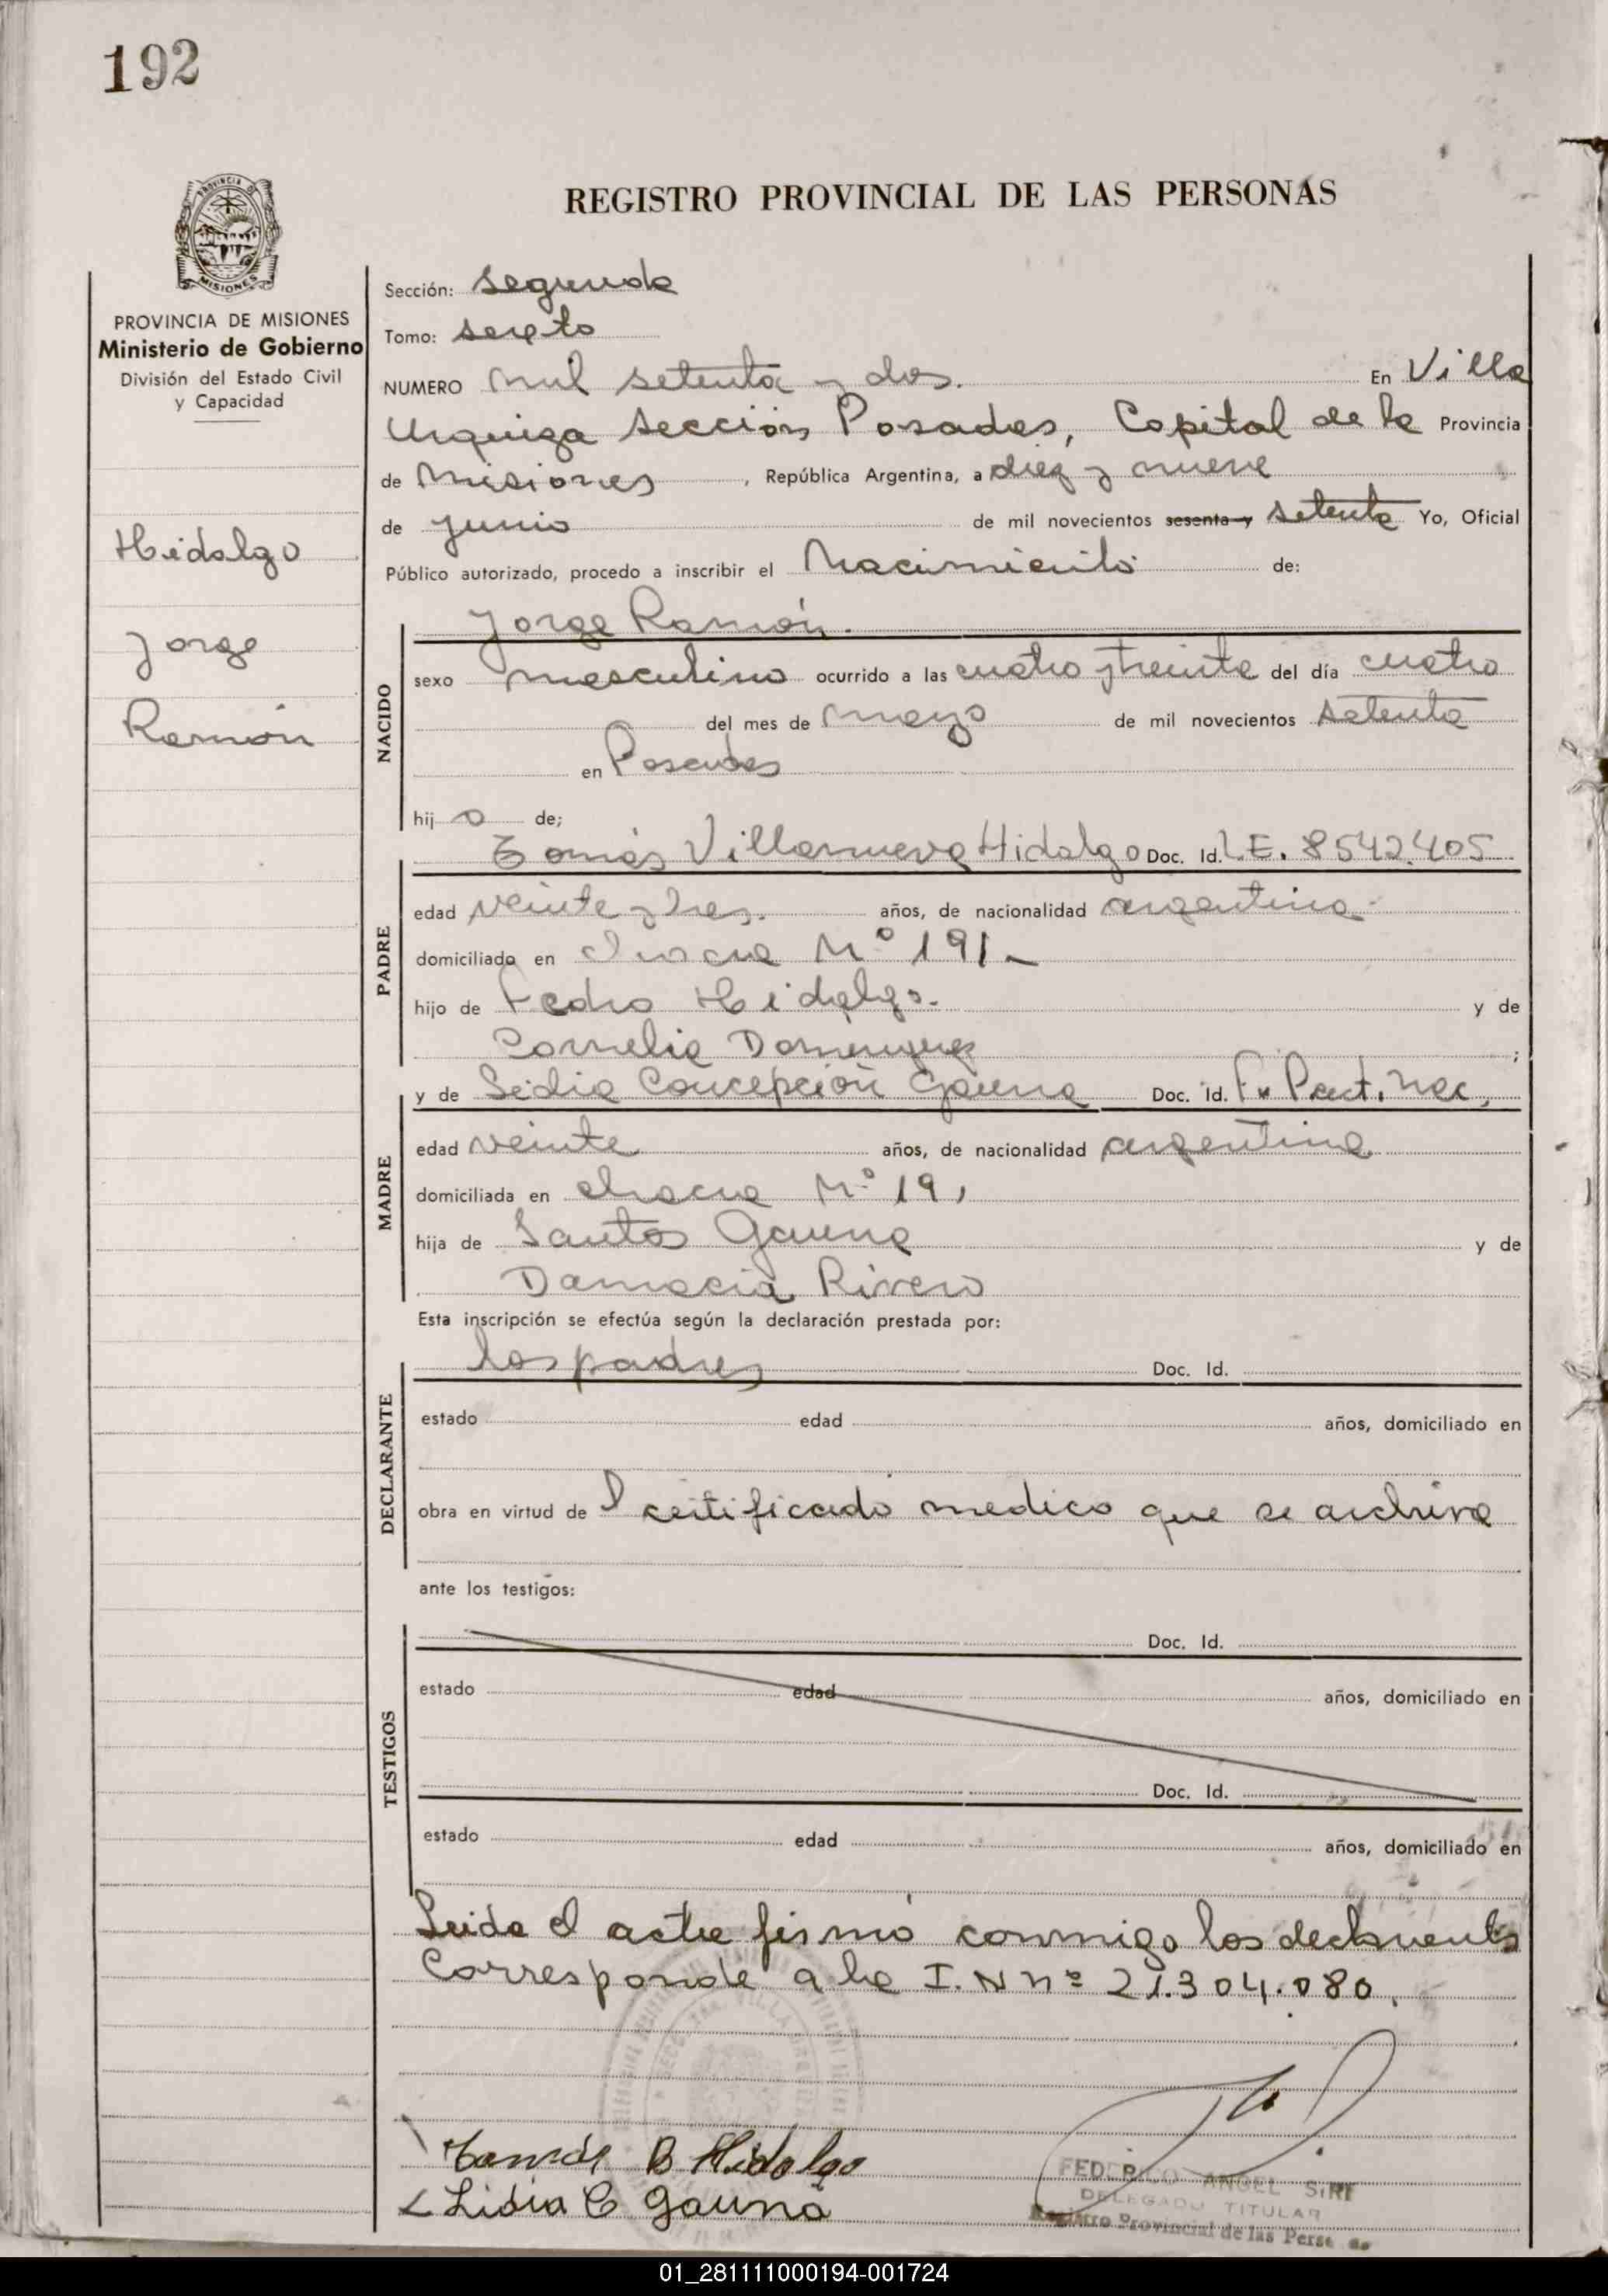 192
REGISTRO PROVINCIAL DE LAS PERSONAS
PROVINCIA DE MISIONES
Ministerio de Gobierno
División del Estado Civil
y Capacidad
Hidalgo
Jorge
Ramón
Sección: segunda
Tomo: sexto
NUMERO mil setenta y dos. En Villa
Urquiza sección Posadas, Capital de la Provincia
de Misiones, República Argentina, a diez y nueve
de junio de mil novecientos sesenta y setenta Yo, Oficial
Público autorizado, procedo a inscribir el Nacimiento de:
Jorge Ramón.
NACIDO
sexo masculino ocurrido a las cuatro y treinta del día cuatro
del mes de mayo de mil novecientos setenta
en Posadas
hijo de;
PADRE
Tomás Villanueva Hidalgo Doc. Id. L.E. 8542.405
edad veinte y tres. años, de nacionalidad argentina
domiciliado en chacra Nº 191.-
hijo de Pedro Hidalgo. y de
Cornelia Domínguez;
MADRE
y de Lidia Concepción Gauna Doc. Id. Part. Nac.
edad veinte años, de nacionalidad argentina
domiciliada en chacra Nº 191
hija de Santos Gauna y de
Damacia Rivero
Esta inscripción se efectúa según la declaración prestada por:
DECLARANTE
los padres Doc. Id.
estado edad años, domiciliado en
obra en virtud de l certificado medico que se archiva
ante los testigos:
TESTIGOS
Doc. Id.
estado edad años, domiciliado en
Doc. Id.
estado edad años, domiciliado en
Leida el acta firmó conmigo los declarantes
Corresponde a la I.N nº 21.304.080.
Tomás B Hidalgo
Lidia C Gauna
FEDERICO ANGEL SIRI
DELEGADO TITULAR
Registro Provincial de las Perso as
01_281111000194-001724